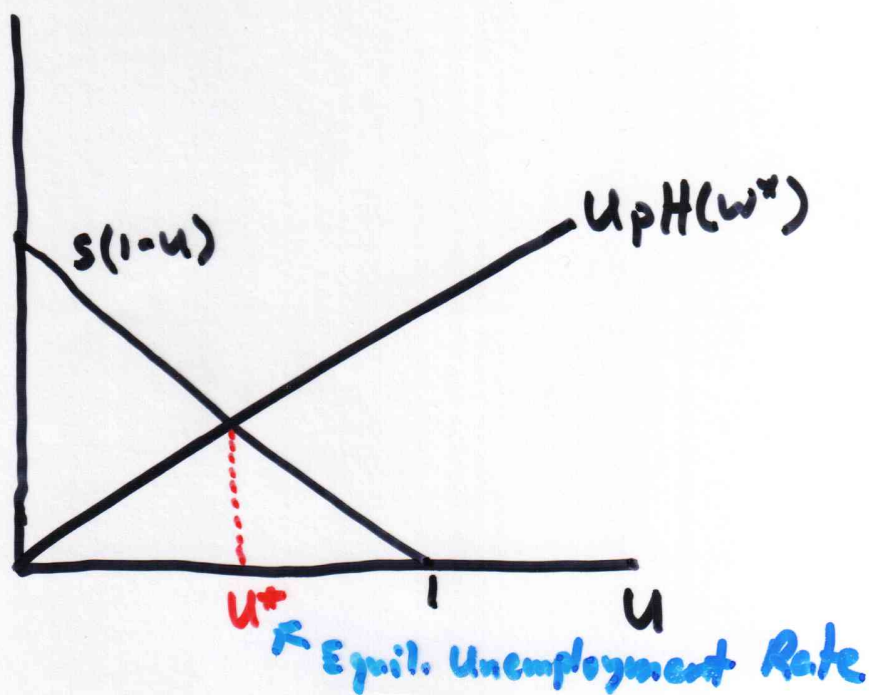 s(1-u)
UpH(w*)
U*
1
U
Equil. Unemployment Rate